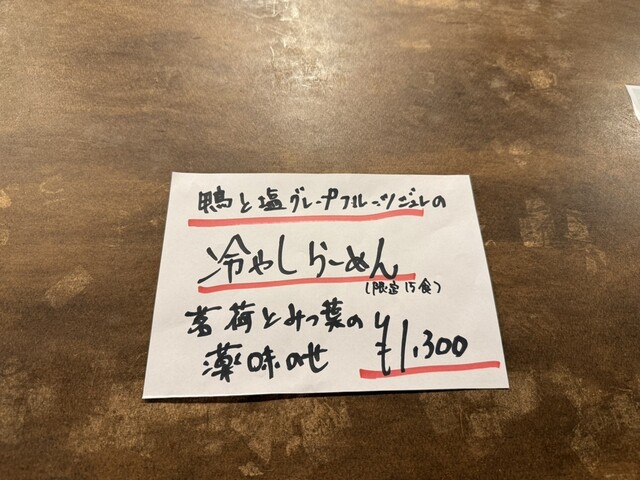 鴨と塩グレープフルーツジュレの
冷やしらーめん
(限定15食)
茗荷とみつ葉の
薬味のせ ¥1,300